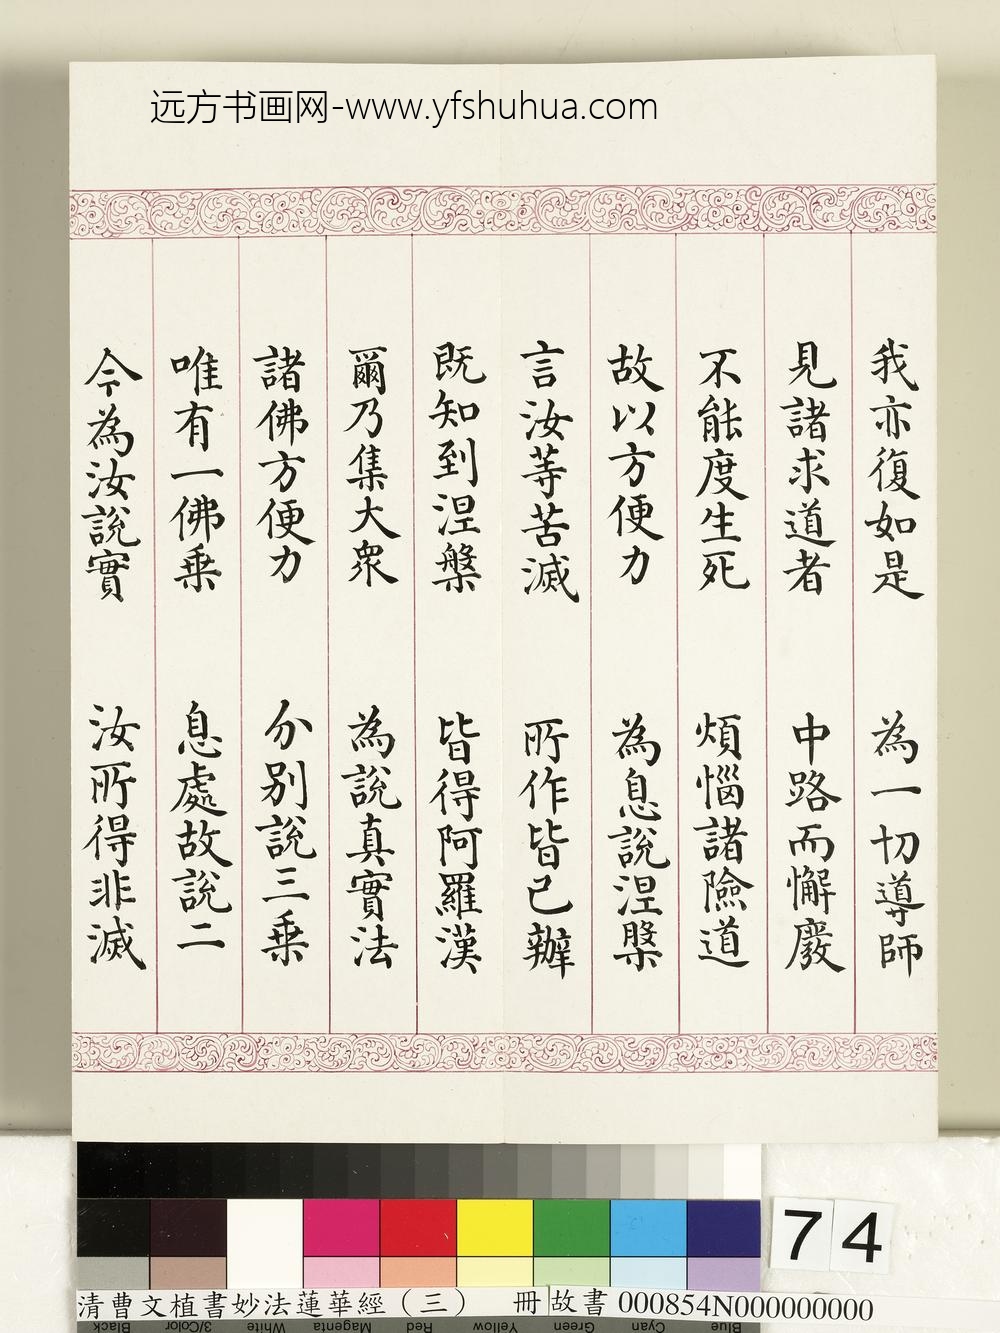 远方书画网-www.yfshuhua.com
我亦復如是 為一切導師
見諸求道者 中路而懈廢
不能度生死 煩惱諸險道
故以方便力 為息說涅槃
言汝等苦滅 所作皆已辦
既知到涅槃 皆得阿羅漢
爾乃集大眾 為說真實法
諸佛方便力 分別說三乘
唯有一佛乘 息處故說二
今為汝說實 汝所得非滅
74
清曹文植書妙法蓮華經（三） 冊 故書 000854N000000000
Black 3/Color White Magenta Red Yellow Green Cyan Blue